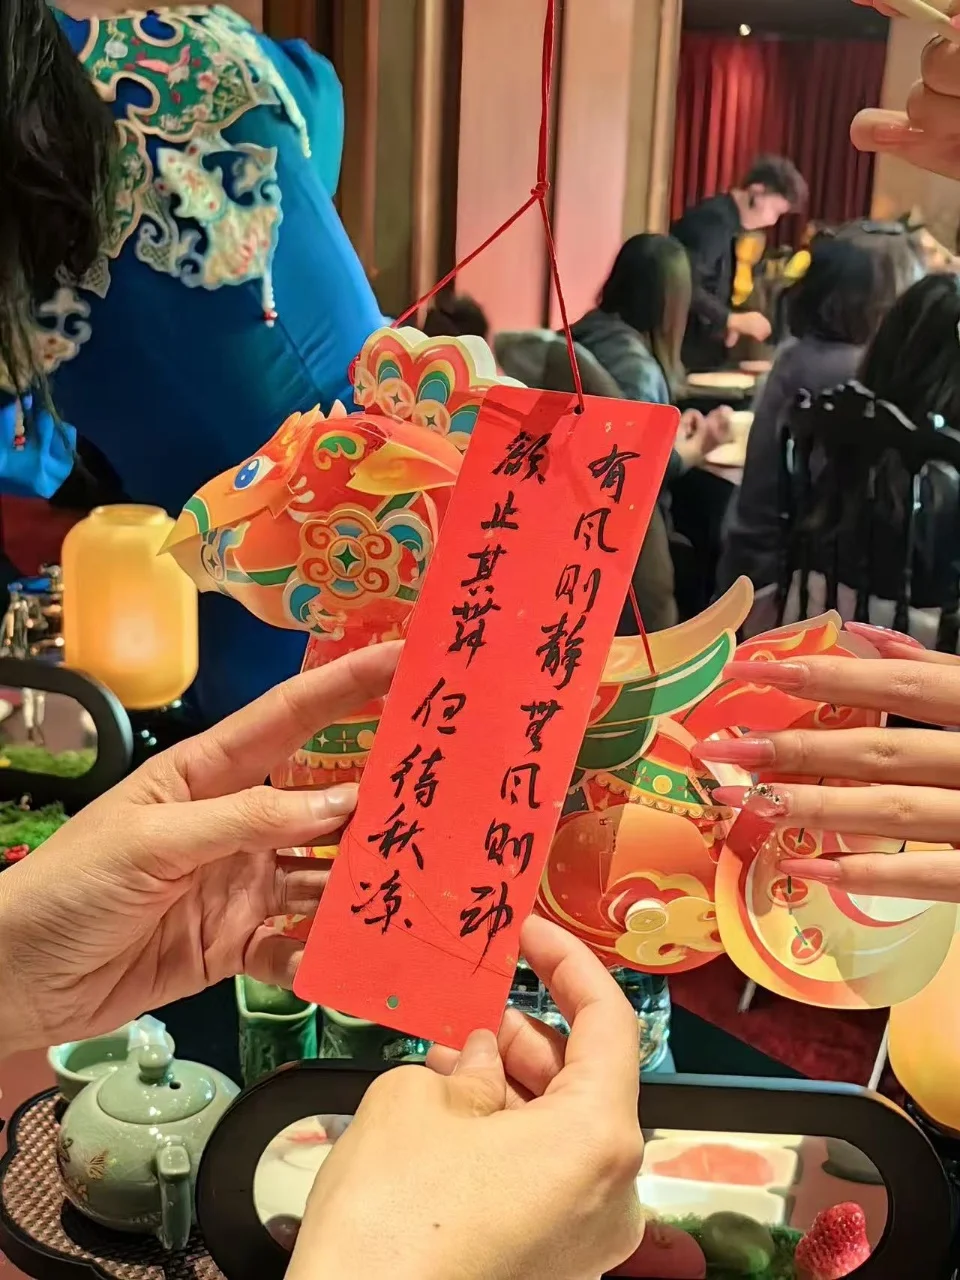 有风则静無风则动
欲止其舞但待秋凉